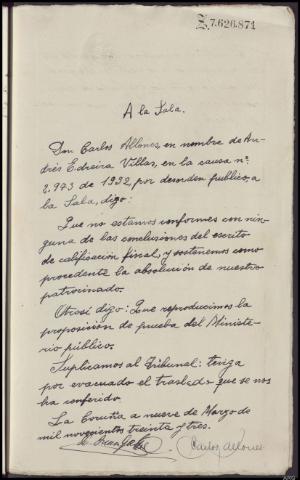 Z.7.626.871
A la Sala.
Don Carlos Allones, en nombre de An-
drés Edreira Villar, en la causa nº.
2.973 de 1932, por desorden publico, a
la Sala, digo:
Que no estamos conformes con nin-
guna de las conclusiones del escrito
de calificación fiscal, y sostenemos como
procedente la absolución de nuestro
patrocinado.
Otrosí digo: Que reproducimos la
proposición de prueba del Ministe-
rio público.
Suplicamos al Tribunal: tenga
por evacuado el traslado que se nos
ha conferido.
La Coruña a nueve de Marzo de
mil novecientos treinta y tres.
Carlos Allones